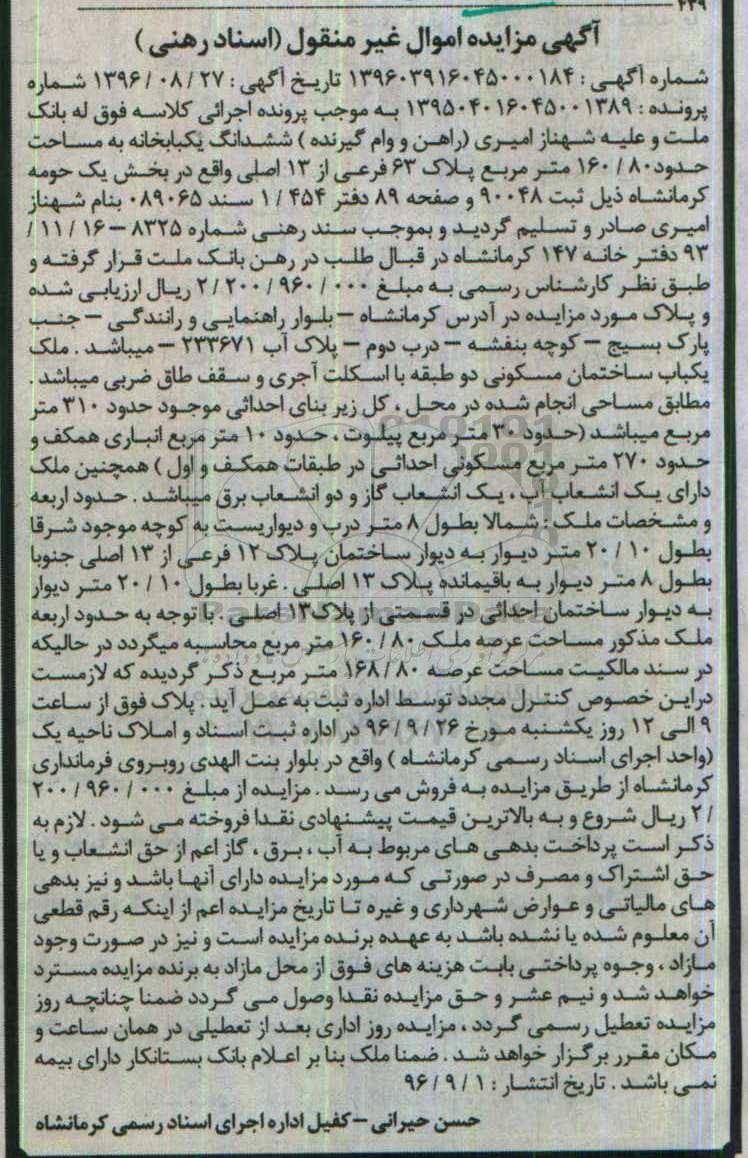 ۲۳۹
آگهی مزایده اموال غیر منقول (اسناد رهنی)
شماره آگهی: ۱۳۹۶۰۳۹۱۶۰۴۵۰۰۰۱۸۴ تاریخ آگهی: ۱۳۹۶/۰۸/۲۷ شماره
پرونده: ۱۳۹۵۰۴۰۱۶۰۴۵۰۰۱۳۸۹ به موجب پرونده اجرائی کلاسه فوق له بانک
ملت و علیه شهناز امیری (راهن و وام گیرنده) ششدانگ یکبابخانه به مساحت
حدود ۱۶۰/۸۰ متر مربع پلاک ۶۳ فرعی از ۱۳ اصلی واقع در بخش یک حومه
کرمانشاه ذیل ثبت ۹۰۰۴۸ و صفحه ۸۹ دفتر ۱/۴۵۴ سند ۰۸۹۰۶۵ بنام شهناز
امیری صادر و تسلیم گردید و بموجب سند رهنی شماره ۸۳۲۵ – ۱۱/۱۶/
۹۳ دفتر خانه ۱۴۷ کرمانشاه در قبال طلب در رهن بانک ملت قرار گرفته و
طبق نظر کارشناس رسمی به مبلغ ۲/۲۰۰/۹۶۰/۰۰۰ ریال ارزیابی شده
و پلاک مورد مزایده در آدرس کرمانشاه – بلوار راهنمایی و رانندگی – جنب
پارک بسیج – کوچه بنفشه – درب دوم – پلاک آب ۲۳۳۶۷۱ – میباشد. ملک
یکباب ساختمان مسکونی دو طبقه با اسکلت آجری و سقف طاق ضربی میباشد.
مطابق مساحی انجام شده در محل، کل زیر بنای احداثی موجود حدود ۳۱۰ متر
مربع میباشد (حدود ۳۰ متر مربع پیلوت، حدود ۱۰ متر مربع انباری همکف و
حدود ۲۷۰ متر مربع مسکونی احداثی در طبقات همکف و اول) همچنین ملک
دارای یک انشعاب آب، یک انشعاب گاز و دو انشعاب برق میباشد. حدود اربعه
و مشخصات ملک: شمالا بطول ۸ متر درب و دیواریست به کوچه موجود شرقا
بطول ۲۰/۱۰ متر دیوار به دیوار ساختمان پلاک ۱۲ فرعی از ۱۳ اصلی جنوبا
بطول ۸ متر دیوار به باقیمانده پلاک ۱۳ اصلی. غربا بطول ۲۰/۱۰ متر دیوار
به دیوار ساختمان احداثی در قسمتی از پلاک ۱۳ اصلی. با توجه به حدود اربعه
ملک مذکور مساحت عرصه ملک ۱۶۰/۸۰ متر مربع محاسبه میگردد در حالیکه
در سند مالکیت مساحت عرصه ۱۶۸/۸۰ متر مربع ذکر گردیده که لازمست
دراین خصوص کنترل مجدد توسط اداره ثبت به عمل آید. پلاک فوق از ساعت
۹ الی ۱۲ روز یکشنبه مورخ ۹۶/۹/۲۶ در اداره ثبت اسناد و املاک ناحیه یک
(واحد اجرای اسناد رسمی کرمانشاه) واقع در بلوار بنت الهدی روبروی فرمانداری
کرمانشاه از طریق مزایده به فروش می رسد. مزایده از مبلغ ۲۰۰/۹۶۰/۰۰۰
/۲ ریال شروع و به بالاترین قیمت پیشنهادی نقدا فروخته می شود. لازم به
ذکر است پرداخت بدهی های مربوط به آب، برق، گاز اعم از حق انشعاب و یا
حق اشتراک و مصرف در صورتی که مورد مزایده دارای آنها باشد و نیز بدهی
های مالیاتی و عوارض شهرداری و غیره تا تاریخ مزایده اعم از اینکه رقم قطعی
آن معلوم شده یا نشده باشد به عهده برنده مزایده است و نیز در صورت وجود
مازاد، وجوه پرداختی بابت هزینه های فوق از محل مازاد به برنده مزایده مسترد
خواهد شد و نیم عشر و حق مزایده نقدا وصول می گردد ضمنا چنانچه روز
مزایده تعطیل رسمی گردد، مزایده روز اداری بعد از تعطیلی در همان ساعت و
مکان مقرر برگزار خواهد شد. ضمنا ملک بنا بر اعلام بانک بستانکار دارای بیمه
نمی باشد. تاریخ انتشار: ۹۶/۹/۱
حسن حیرانی – کفیل اداره اجرای اسناد رسمی کرمانشاه